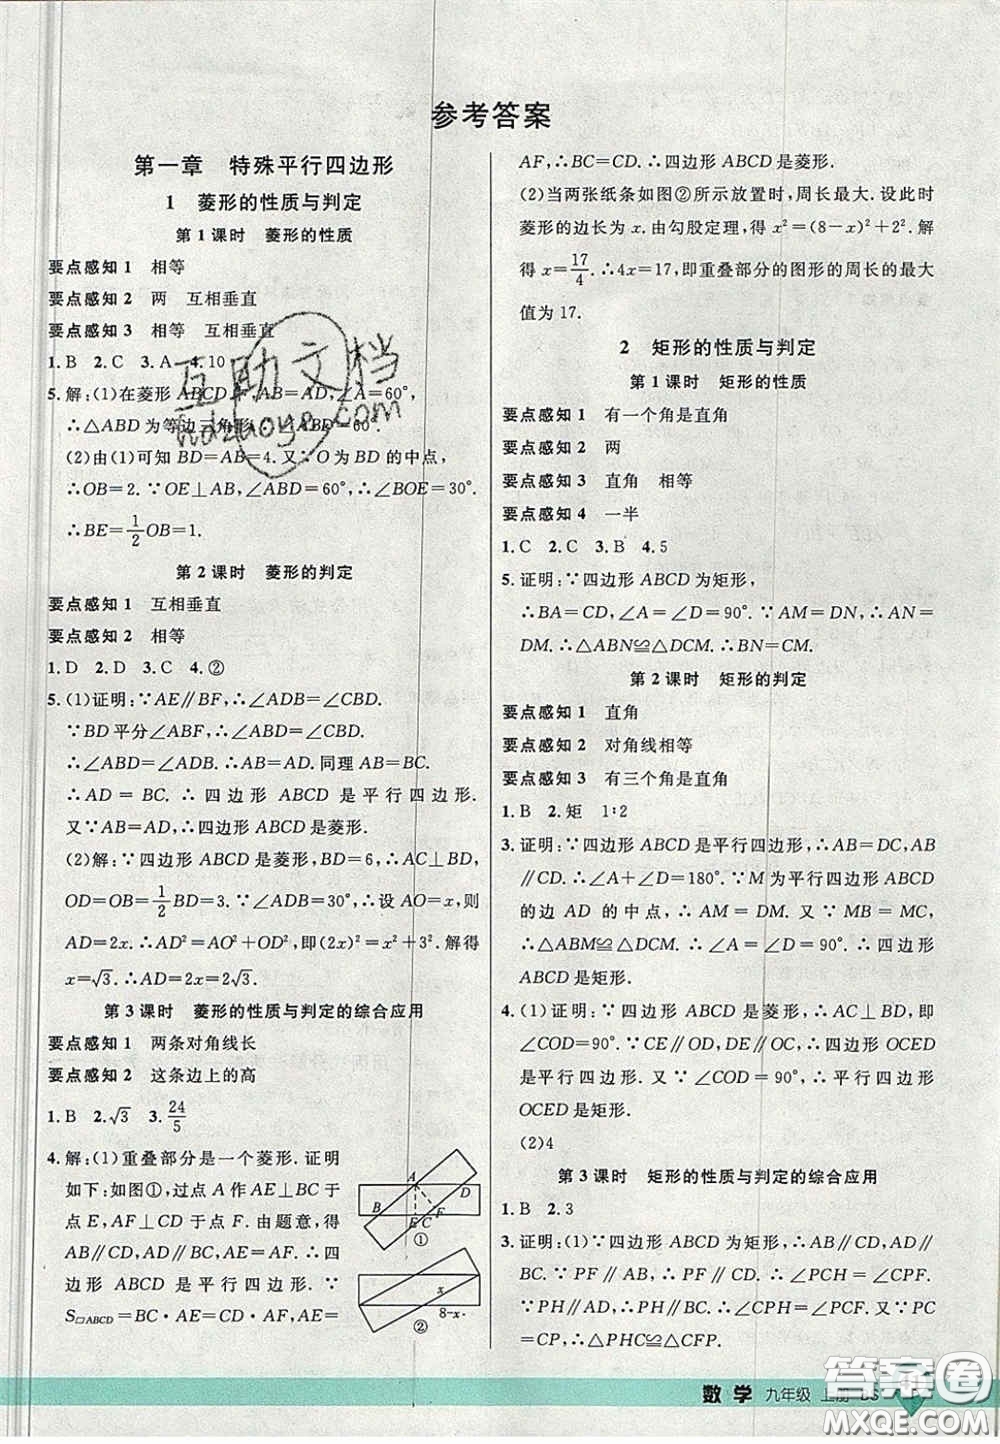 参考答案
第一章 特殊平行四边形
1 菱形的性质与判定
第1课时 菱形的性质
要点感知1 相等
要点感知2 两 互相垂直
要点感知3 相等 互相垂直
1.B 2.C 3.A 4.10
5.解:(1)在菱形ABCD中,AB=AD,∠A=60°,
∴△ABD为等边三角形.
(2)由(1)可知BD=AB=4.又∵O为BD的中点,
∴OB=2.∵OE⊥AB,∠ABD=60°,∴∠BOE=30°.
∴BE=1/2OB=1.
第2课时 菱形的判定
要点感知1 互相垂直
要点感知2 相等
1.D 2.D 3.C 4.②
5.(1)证明:∵AE∥BF,∴∠ADB=∠DBC.
∵BD平分∠ABF,∴∠ABD=∠DBF.
∴∠ABD=∠ADB.∴AB=AD.同理AB=BC.
∴AD=BC.∴四边形ABCD是平行四边形.
又∵AB=AD,∴四边形ABCD是菱形.
(2)解:∵四边形ABCD是菱形,BD=6,∴AC⊥BD,
OD=OB=1/2BD=3.∵∠ADB=30°,∴设AO=x,则
AD=2x.∴AD²=AO²+OD²,即(2x)²=x²+3².解得
x=√3.∴AD=2x=2√3.
第3课时 菱形的性质与判定的综合应用
要点感知1 两条对角线长
要点感知2 这条边上的高
1.B 2.√3 3.24/5
4.解:(1)重叠部分是一个菱形.证明
如下:如图①,过点A作AE⊥BC于
点E,AF⊥CD于点F.由题意,得
AB∥CD,AD∥BC,AE=AF.∴四
边形ABCD是平行四边形.∵
S▱ABCD=BC·AE=CD·AF,AE=
A
B
D
E
C
F
①
x
8-x
②
AF,∴BC=CD.∴四边形ABCD是菱形.
(2)当两张纸条如图②所示放置时,周长最大.设此时
菱形的边长为x.由勾股定理,得x²=(8-x)²+2².解
得x=17/4.∴4x=17,即重叠部分的图形的周长的最大
值为17.
2 矩形的性质与判定
第1课时 矩形的性质
要点感知1 有一个角是直角
要点感知2 两
要点感知3 直角 相等
要点感知4 一半
1.C 2.C 3.B 4.5
5.证明:∵四边形ABCD为矩形,
∴BA=CD,∠A=∠D=90°.∵AM=DN,∴AN=
DM.∴△ABN≌△DCM.∴BN=CM.
第2课时 矩形的判定
要点感知1 直角
要点感知2 对角线相等
要点感知3 有三个角是直角
1.B 2.矩 1∶2
3.证明:∵四边形ABCD是平行四边形,∴AB=DC,AB
∥CD.∴∠A+∠D=180°.∵M为平行四边形ABCD
的边AD的中点,∴AM=DM.又∵MB=MC,
∴△ABM≌△DCM.∴∠A=∠D=90°.∴四边形
ABCD是矩形.
4.(1)证明:∵四边形ABCD是菱形,∴AC⊥BD,即
∠COD=90°.∵CE∥OD,DE∥OC,∴四边形OCED
是平行四边形.又∵∠COD=90°,∴平行四边形
OCED是矩形.
(2)4
第3课时 矩形的性质与判定的综合应用
1.B 2.3
3.证明:(1)∵四边形ABCD为矩形,∴AB∥CD,AD∥
BC.∵PF∥AB,∴PF∥CD.∴∠CPF=∠PCH.
∵PH∥AD,∴PH∥BC.∴∠PCF=∠CPH.又∵PC
=CP,∴△PHC≌△CFP.
数学 九年级 上册 BS
互助文档
hdzuoye.com
答案圈
MXQE.COM